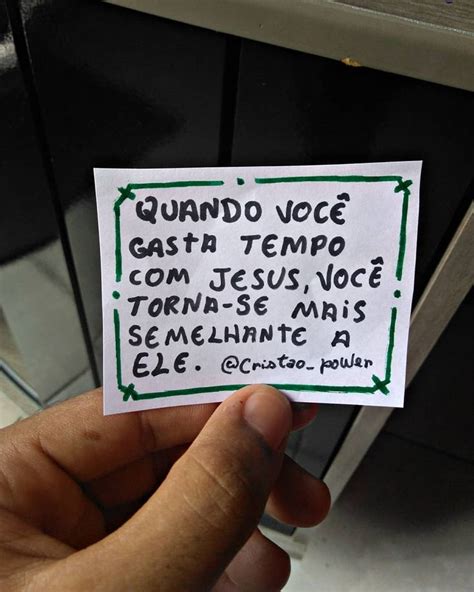 QUANDO VOCÊ
GASTA TEMPO
COM JESUS, VOCÊ
TORNA-SE MAIS
SEMELHANTE A
ELE. @Cristao_power